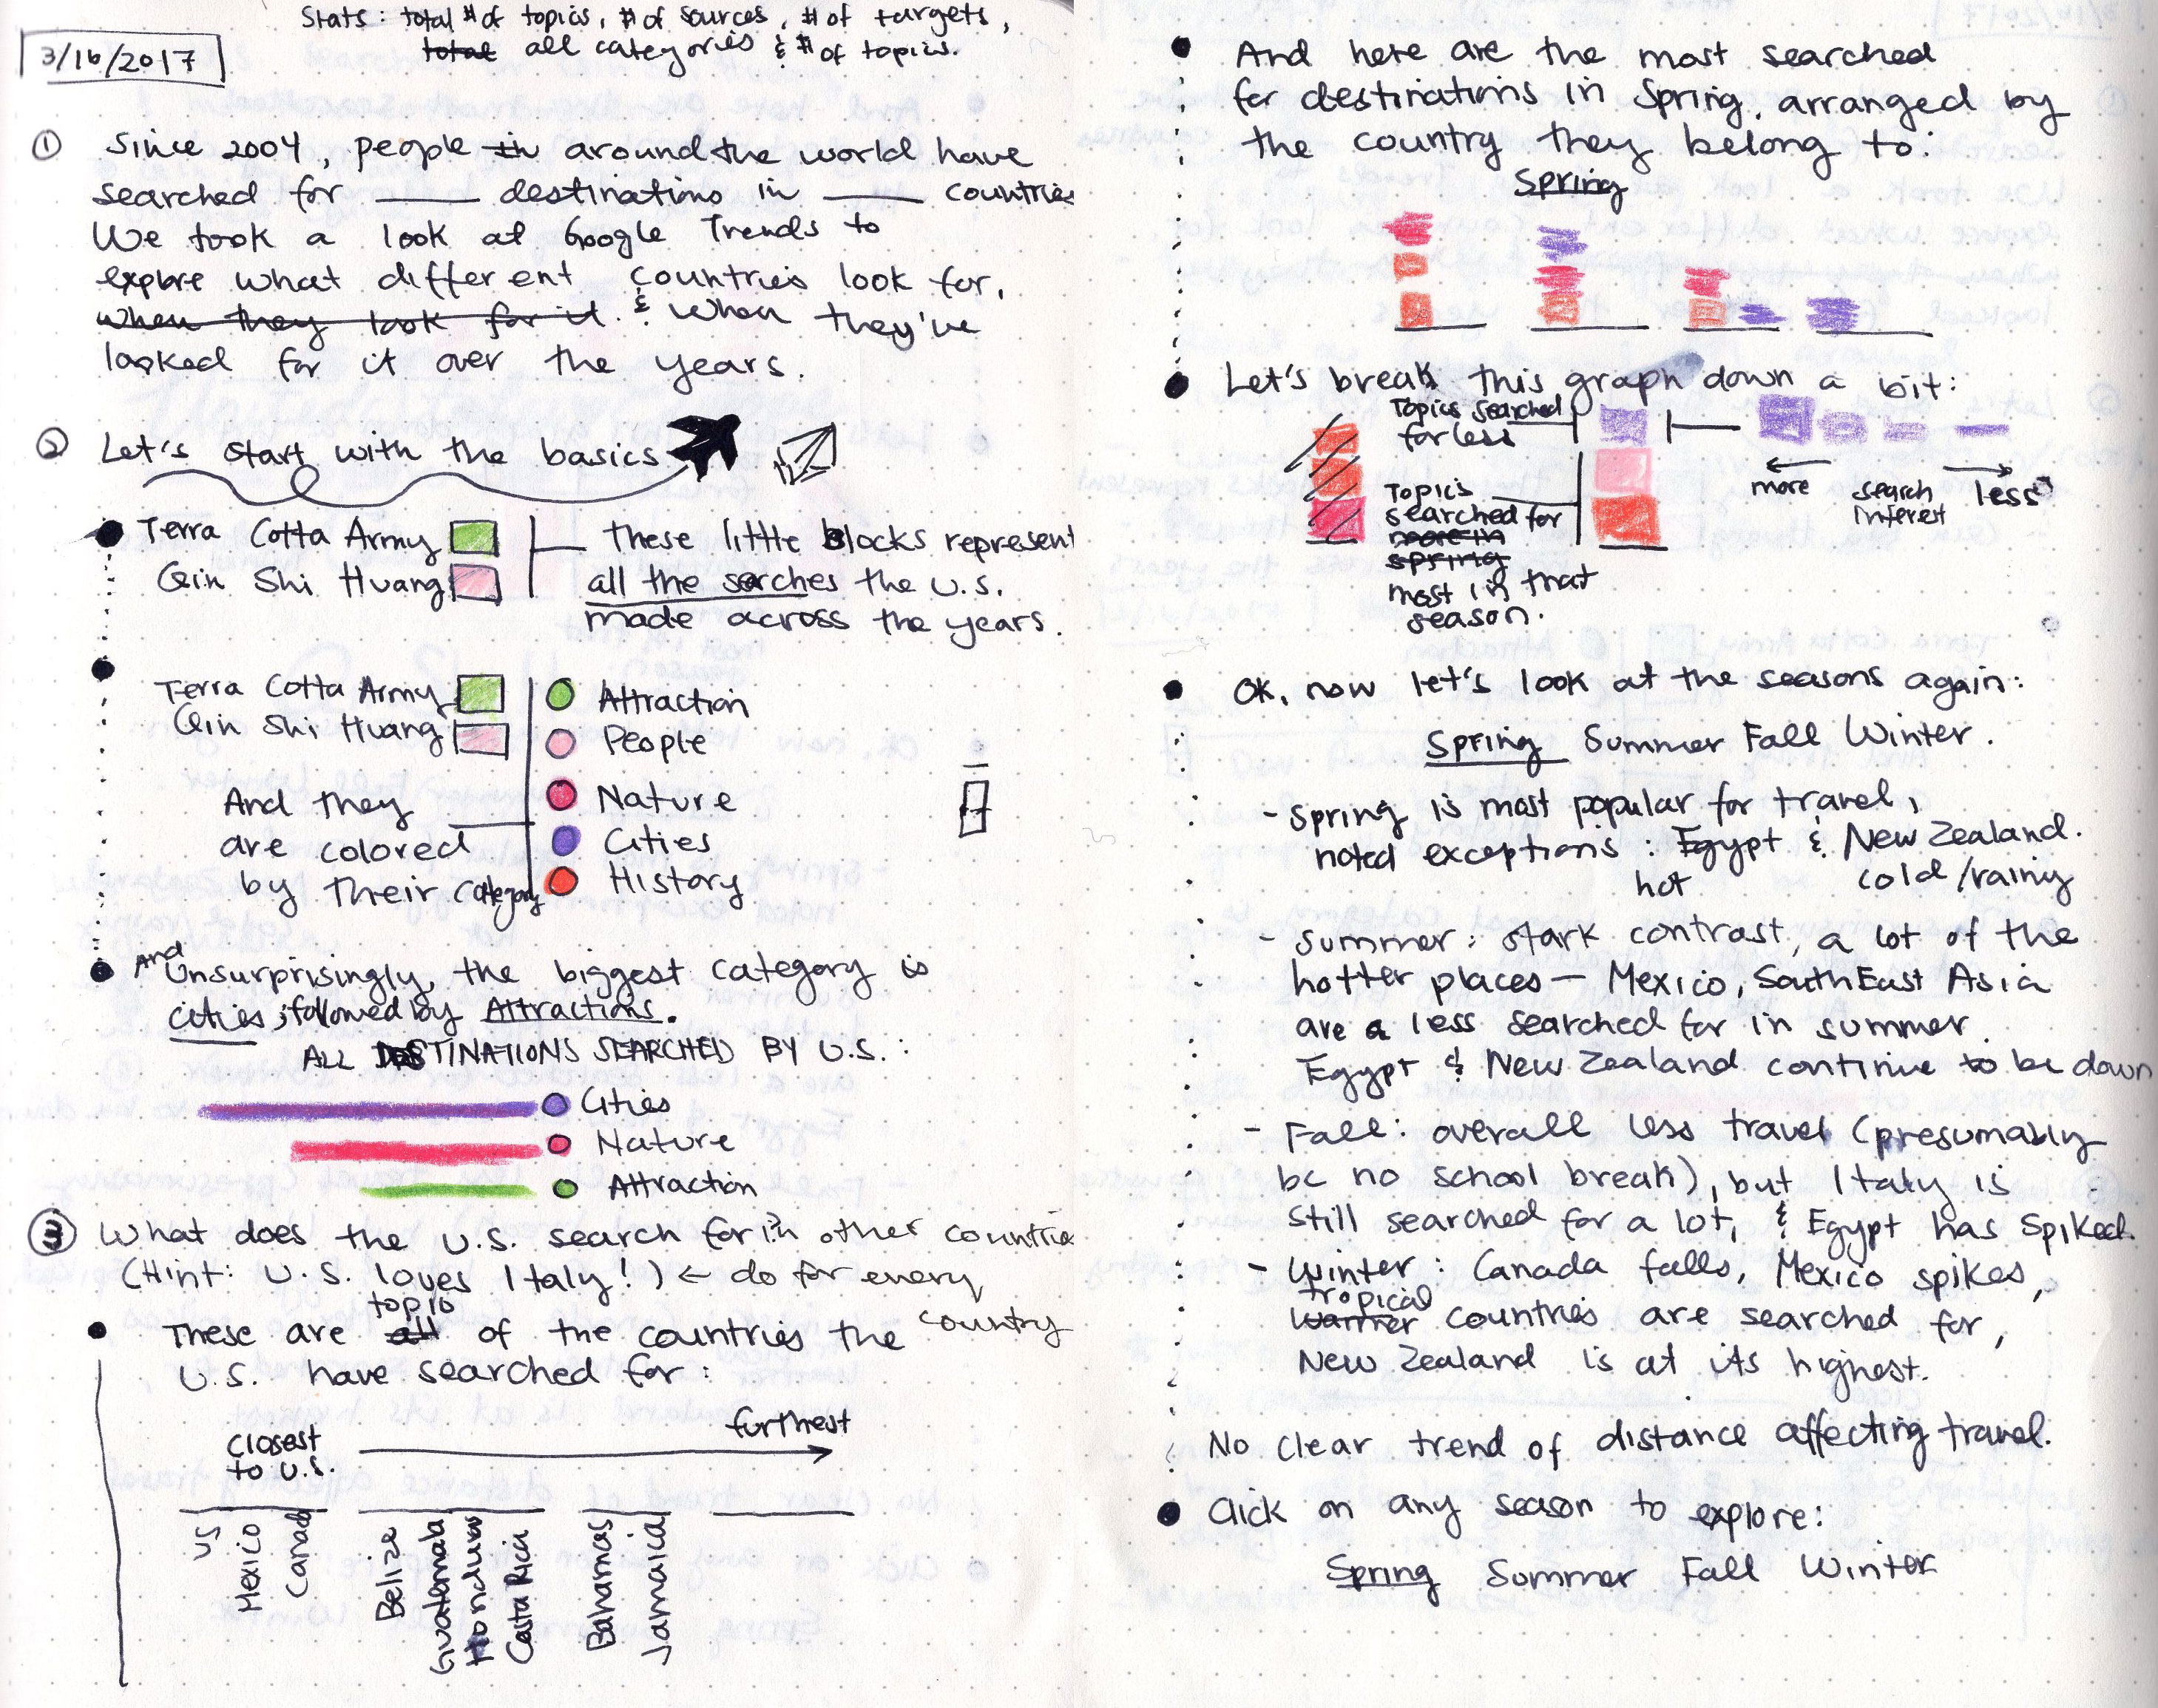 Stats: total # of topics, # of sources, # of targets,
total all categories & # of topics.
3/16/2017
① Since 2004, people in around the world have
searched for ____ destinations in ____ countries
We took a look at Google Trends to
explore what different countries look for,
when they look for it & when they've
looked for it over the years.
② Let's start with the basics
Terra Cotta Army
Qin Shi Huang
These little blocks represent
all the serches the U.S.
made across the years.
Terra Cotta Army
Qin Shi Huang
And they
are colored
by their category
Attraction
People
Nature
Cities
History
And Unsurprisingly, the biggest category is
cities, followed by Attractions.
ALL DESTINATIONS SEARCHED BY U.S.:
Cities
Nature
Attraction
③ What does the U.S. search for in other countrie
(Hint: U.S. loves Italy!) ← do for every
country
These are all top 10 of the countries the
U.S. have searched for:
closest
to U.S.
furthest
US
Mexico
Canada
Belize
Guatemala
Honduras
Costa Rica
Bahamas
Jamaica
And here are the most searched
for destinations in Spring, arranged by
the country they belong to:
Spring
Let's break this graph down a bit:
Topics searched
for less
Topics
searched for
more in
spring
most in that
season.
more
search
interest
less
OK, now let's look at the seasons again:
Spring Summer Fall Winter.
- Spring is most popular for travel,
noted exceptions: Egypt & New Zealand.
hot
cold/rainy
- Summer: stark contrast, a lot of the
hotter places — Mexico, SouthEast Asia
are a less searched for in summer.
Egypt & New Zealand continue to be down
- Fall: overall less travel (presumably
bc no school break), but Italy is
still searched for a lot, & Egypt has spiked.
- Winter: Canada falls, Mexico spikes,
tropical
warmer countries are searched for,
New Zealand is at its highest.
No clear trend of distance affecting travel.
Click on any season to explore:
Spring Summer Fall Winter